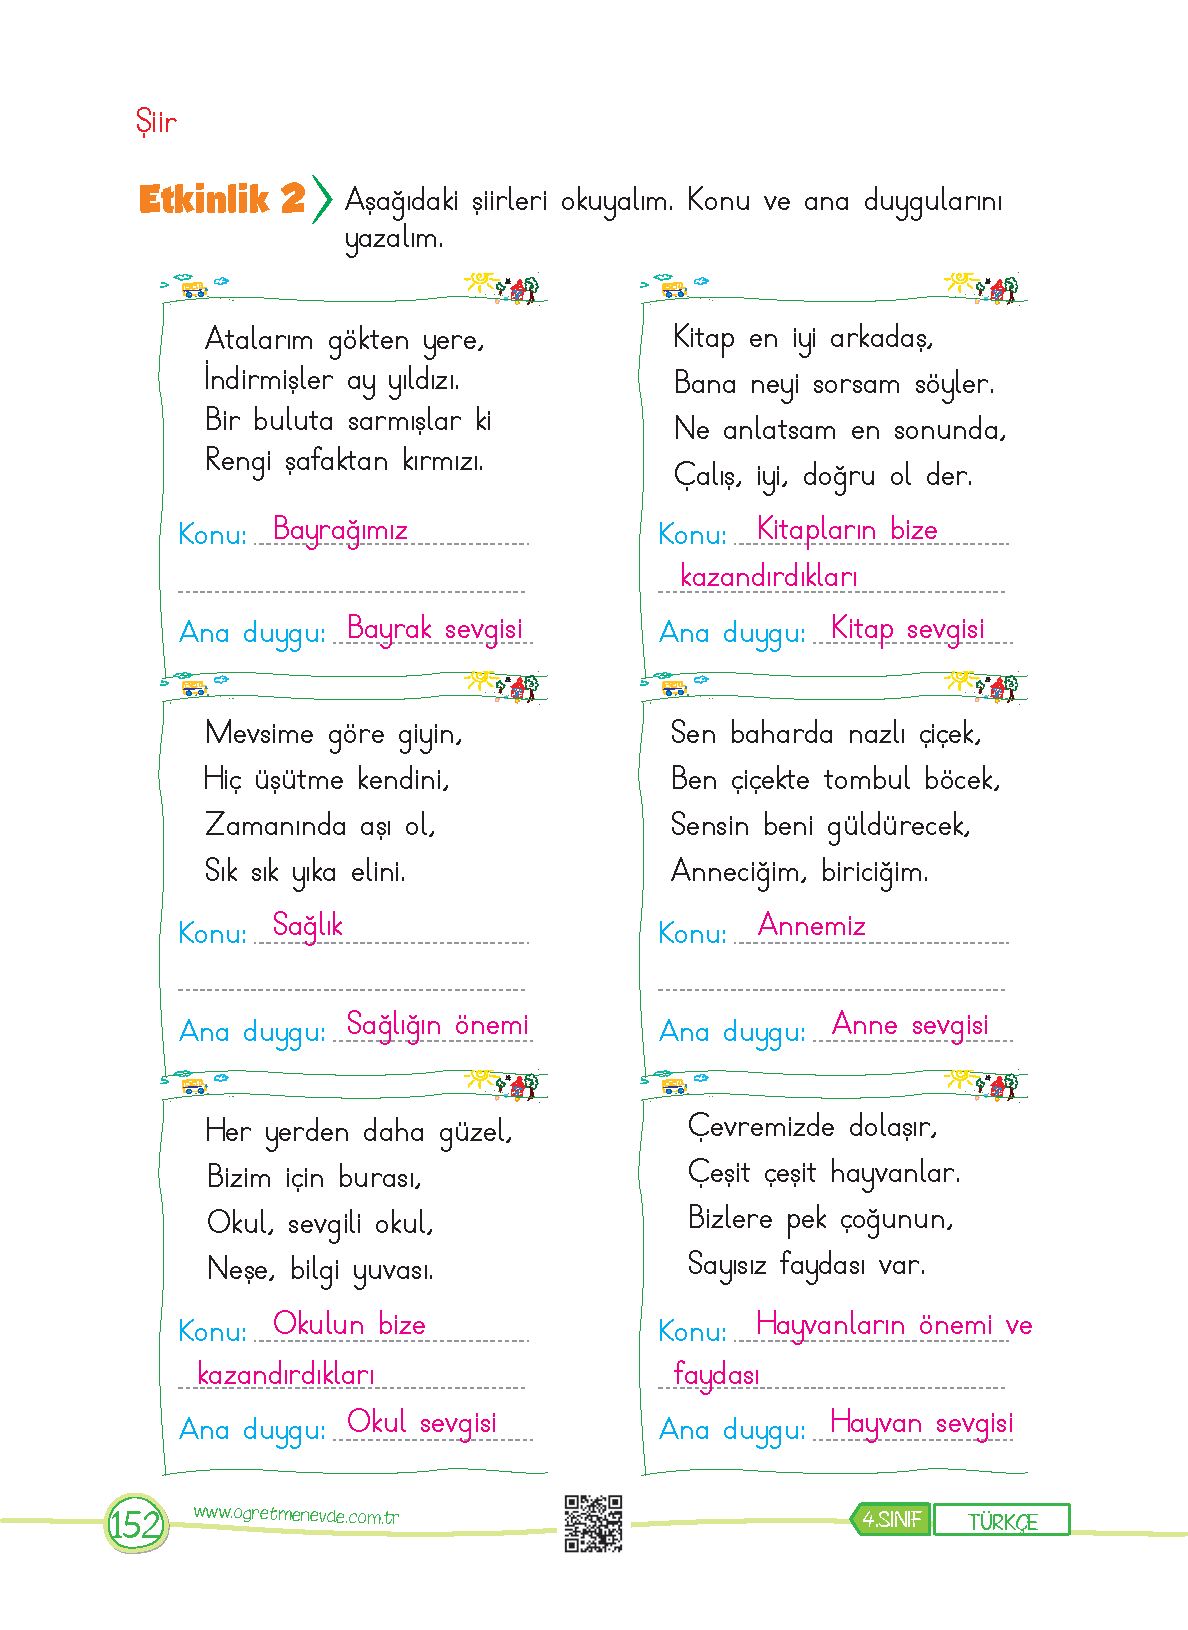 Şiir
Etkinlik 2 Aşağıdaki şiirleri okuyalım. Konu ve ana duygularını
yazalım.
Atalarım gökten yere,
İndirmişler ay yıldızı.
Bir buluta sarmışlar ki
Rengi şafaktan kırmızı.
Konu: Bayrağımız
Ana duygu: Bayrak sevgisi
Kitap en iyi arkadaş,
Bana neyi sorsam söyler.
Ne anlatsam en sonunda,
Çalış, iyi, doğru ol der.
Konu: Kitapların bize
kazandırdıkları
Ana duygu: Kitap sevgisi
Mevsime göre giyin,
Hiç üşütme kendini,
Zamanında aşı ol,
Sık sık yıka elini.
Konu: Sağlık
Ana duygu: Sağlığın önemi
Sen baharda nazlı çiçek,
Ben çiçekte tombul böcek,
Sensin beni güldürecek,
Anneciğim, biriciğim.
Konu: Annemiz
Ana duygu: Anne sevgisi
Her yerden daha güzel,
Bizim için burası,
Okul, sevgili okul,
Neşe, bilgi yuvası.
Konu: Okulun bize
kazandırdıkları
Ana duygu: Okul sevgisi
Çevremizde dolaşır,
Çeşit çeşit hayvanlar.
Bizlere pek çoğunun,
Sayısız faydası var.
Konu: Hayvanların önemi ve
faydası
Ana duygu: Hayvan sevgisi
152 www.ogretmenevde.com.tr 4.SINIF TÜRKÇE